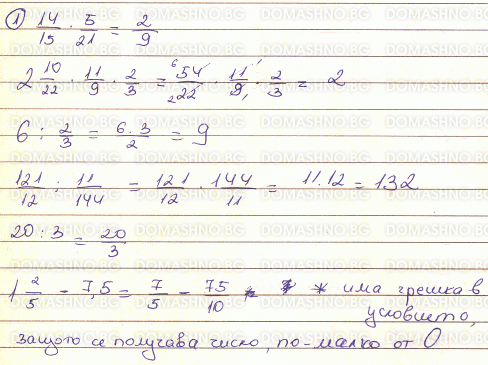 ① 14/15 · 5/21 = 2/9
2 10/22 · 11/9 · 2/3 = 54/22 · 11/9 · 2/3 = 2
6 : 2/3 = 6.3/2 = 9
121/12 : 11/144 = 121/12 · 144/11 = 11.12 = 132
20 : 3 = 20/3
1 2/5 - 7,5 = 7/5 - 75/10 * има грешка в
условието,
защото се получава число, по-малко от 0